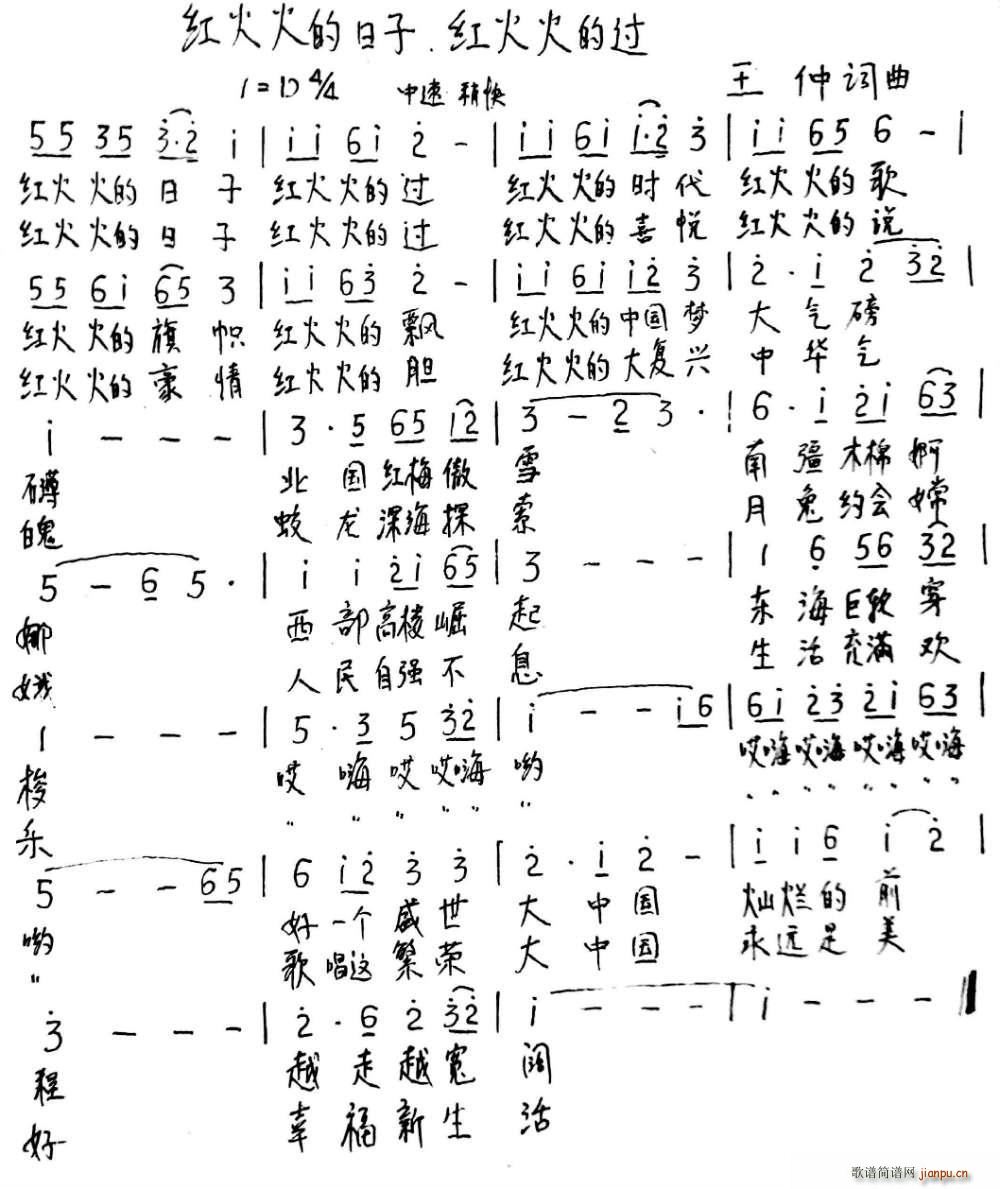 红火火的日子.红火火的过
1=D 4/4 中速 稍快 王 仲 词曲
5 5 3 5 3·2 i | i i 6 i 2 - | i i 6 i i·2 3 | i i 6 5 6 - |
红火火的日子 红火火的过 红火火的时代 红火火的歌
红火火的日子 红火火的过 红火火的喜悦 红火火的说
5 5 6 i 6 5 3 | i i 6 3 2 - | i i 6 i i 2 3 | 2 · i 2 3 2 |
红火火的旗帜 红火火的飘 红火火的中国梦 大气磅
红火火的豪情 红火火的胆 红火火的大复兴 中华气
i - - - | 3 · 5 6 5 i 2 | 3 - 2 3 · | 6 · i 2 i 6 3 |
礴 北国红梅傲雪 南疆木棉婀
魄 蛟龙深海探索 月兔约会嫦
5 - 6 5 · | i i 2 i 6 5 | 3 - - - | 1 6 5 6 3 2 |
娜 西部高楼崛起 东海巨轮穿
娥 人民自强不息 生活充满欢
1 - - - | 5 · 3 5 3 2 | i - - i 6 | 6 i 2 3 2 i 6 3 |
梭 哎嗨哎哎嗨哟 哎嗨哎嗨哎嗨哎嗨
乐 " " " " " " " " " " " " " "
5 - - 6 5 | 6 i 2 3 3 | 2 · i 2 - | i i 6 i 2 |
哟 好一个盛世 大中国 灿烂的前
" 歌唱这繁荣 大中国 永远是美
3 - - - | 2 · 6 2 3 2 | i - - - | i - - - ‖
程 越走越宽阔
好 幸福新生活
歌谱简谱网 jianpu.cn